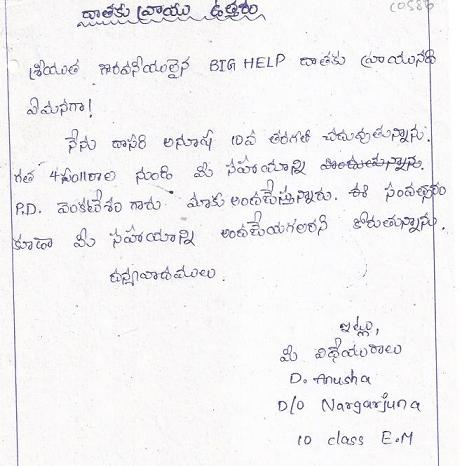 C0586
దాతకు వ్రాయు ఉత్తరం
శ్రీయుత గౌరవనీయులైన BIG HELP దాతకు వ్రాయునది
ఏమనగా!
నేను దాసరి అనూష 10వ తరగతి చదువుతున్నాను.
గత 4సం॥రాల నుండి మీ సహాయాన్ని పొందుతున్నాను.
P.D. వెంకటేశం గారు మాకు అందచేస్తున్నారు. ఈ సంవత్సరం
కూడా మీ సహాయాన్ని అందచేయగలరని కోరుతున్నాను.
ధన్యవాదములు.
ఇట్లు,
మీ విధేయురాలు
D. Anusha
D/O Nargarjuna
10 class E.M